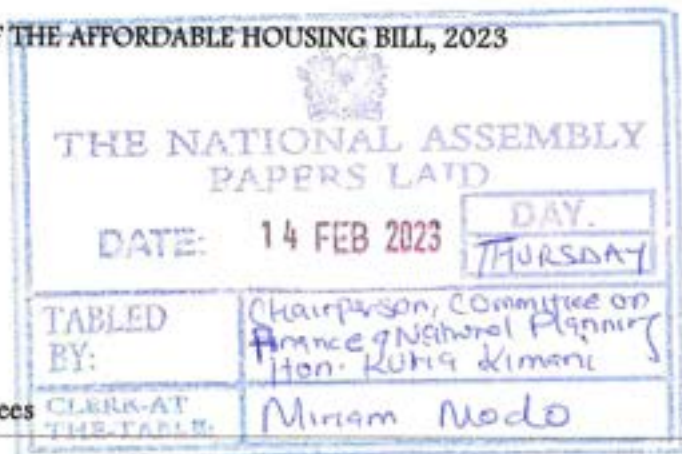 THE AFFORDABLE HOUSING BILL, 2023
THE NATIONAL ASSEMBLY
PAPERS LAID
DATE: 14 FEB 2023
DAY.
THURSDAY
TABLED BY:
Chairperson, Committee on
Finance & National Planning
Hon. Kuria Kimani
ees
CLERK-AT
THE-TABLE:
Miriam Modo